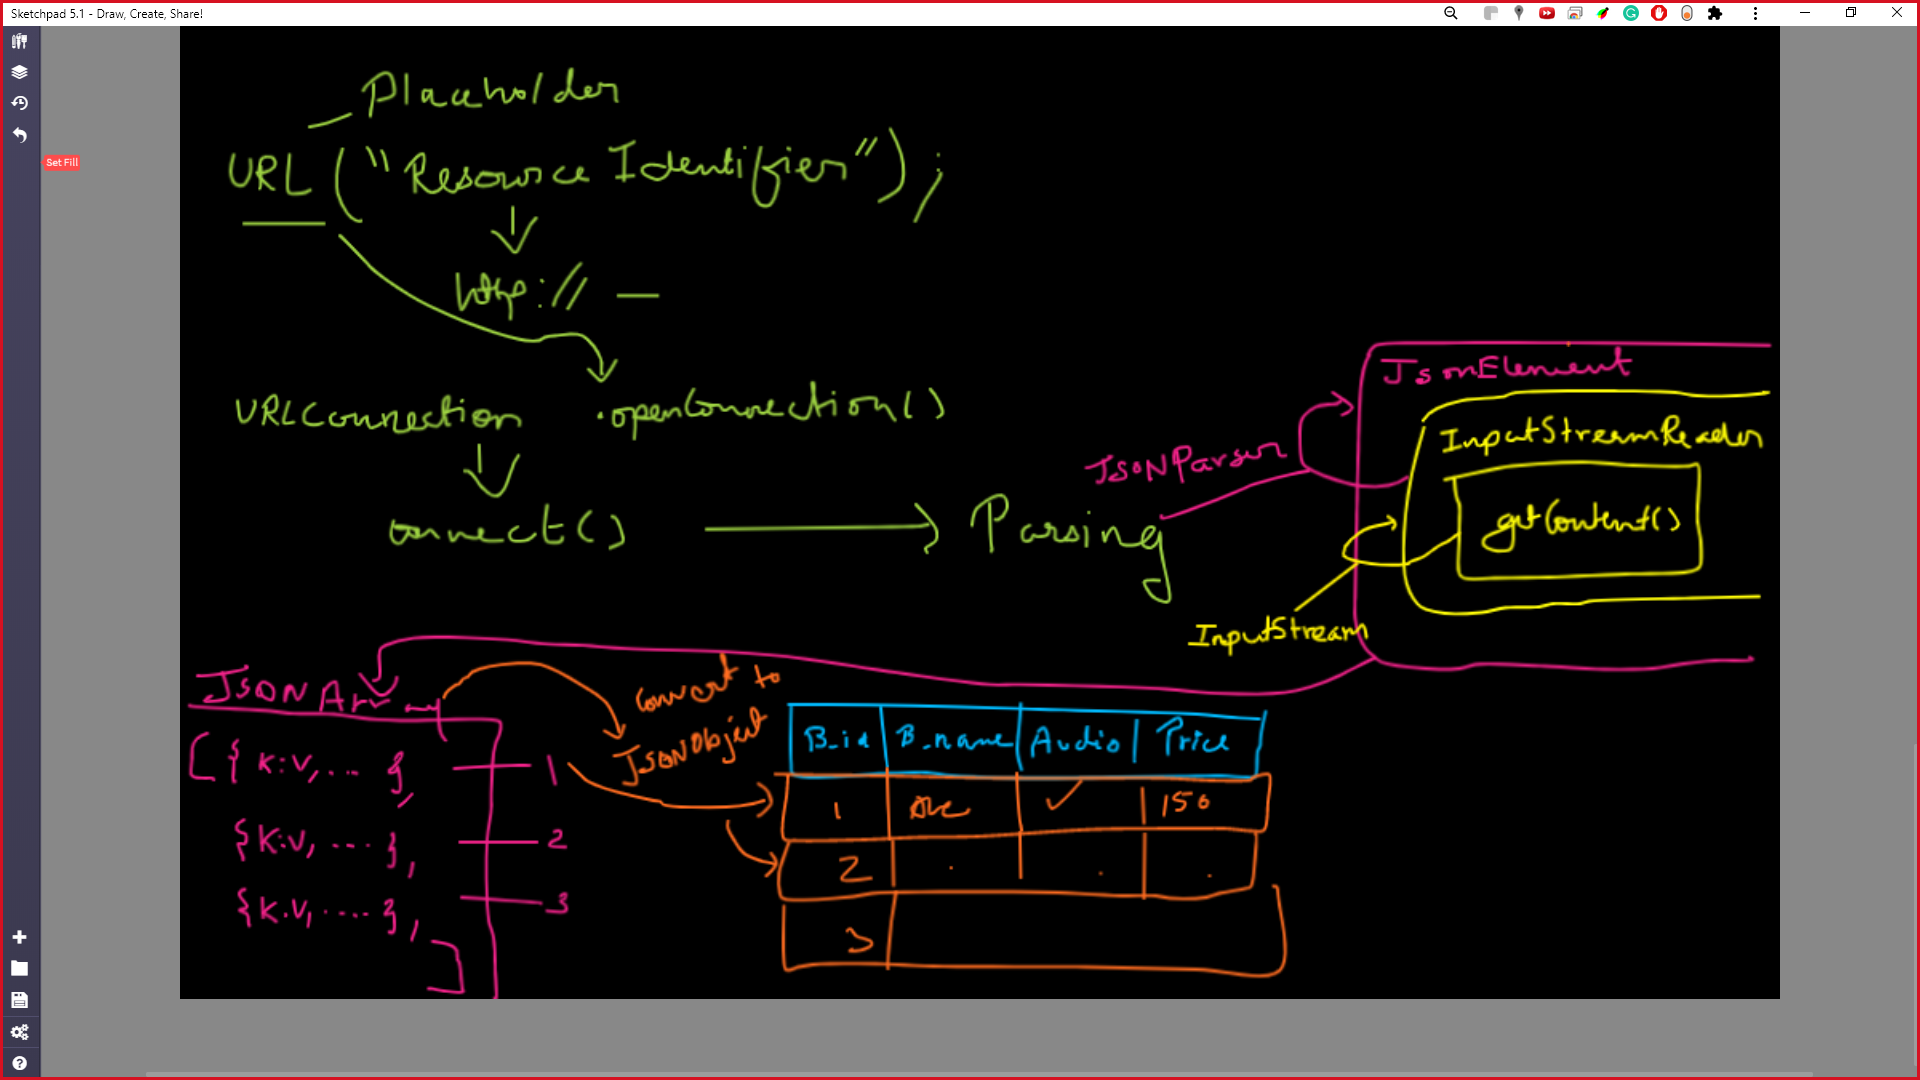 Sketchpad 5.1 - Draw, Create, Share!
Set Fill
Placeholder
URL ("Resource Identifier");
http:// —
URLConnection .openConnection()
connect() Parsing
JSONParser
JsonElement
InputStreamReader
getContent()
InputStream
JSON Array
[{ K:V, ... }, 1
{K:V, ....}, 2
{K:V, ....}, 3
]
Convert to
JSONObject
B_id B_name Audio Price
1 ✓ 150
2 . . .
3